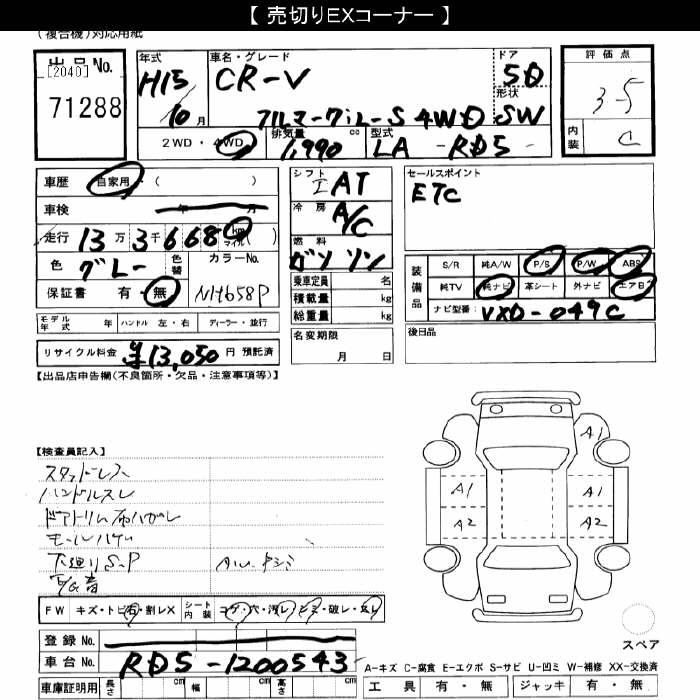 【 売切りEXコーナー 】
(複合機)対応用紙
出品No.
[2040]
71288
年式
H15
10 月
車名・グレード
CR-V
フルマークiL-S 4WD
ドア
5D
形状
SW
2WD・4WD
排気量
1,990 cc
型式
LA - RD5 -
評価点
3-5
内装
C
車歴 自家用・( )
車検 年 月
走行 13万 3千 668 km マイル ( )
色 グレー 色替 カラーNo.
保証書 有・無 NH658P
モデル年式 年 ハンドル 左・右 ディーラー・並行
リサイクル料金 ¥13,050 円 預託済
シフト
IAT
冷房
A/C
燃料
ガソリン
乗車定員 名
積載量 kg
総重量 kg
名変期限
月 日
セールスポイント
ETC
装備品
S/R 純A/W P/S P/W ABS
純TV 純ナビ 革シート 外ナビ エアB
ナビ型番: VXD-049C
後日品
【出品店申告欄(不良箇所・欠品・注意事項等)】
【検査員記入】
スタッドレス
ハンドルスレ
ドアトリム布ハガレ
モールハゲ
下廻りS.P
E/G音
A1
A1 A1
A2 A2
スペア
FW キズ・トビ石・割レX シート内装 コゲ・穴・汚レ シミ・破レ・スレ
登録 No.
車台 No. RD5-1200543
車庫証明用 長さ cm 幅 cm 高さ cm
A-キズ C-腐食 E-エクボ S-サビ U-凹ミ W-補修 XX-交換済
工具 有・無 ジャッキ 有・無